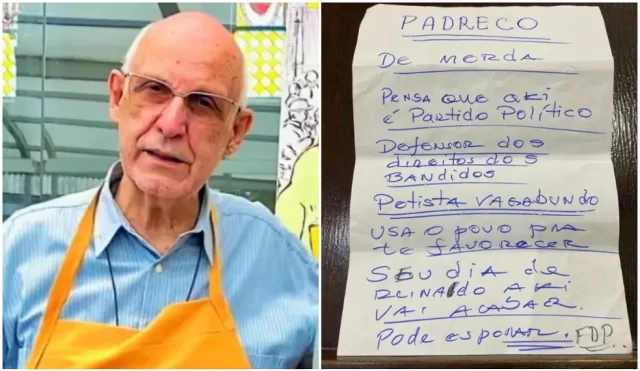 PADRECO
DE MERDA
PENSA QUE AKI
É PARTIDO POLÍTICO
DEFENSOR DOS
direitos dos
BANDIDOS
PETISTA VAGABUNDO
USA O POVO PRA
te FAVORECER
SEU DIA DE
REINADO AKI
VAI ACABAR.
Pode esperar. FDP..